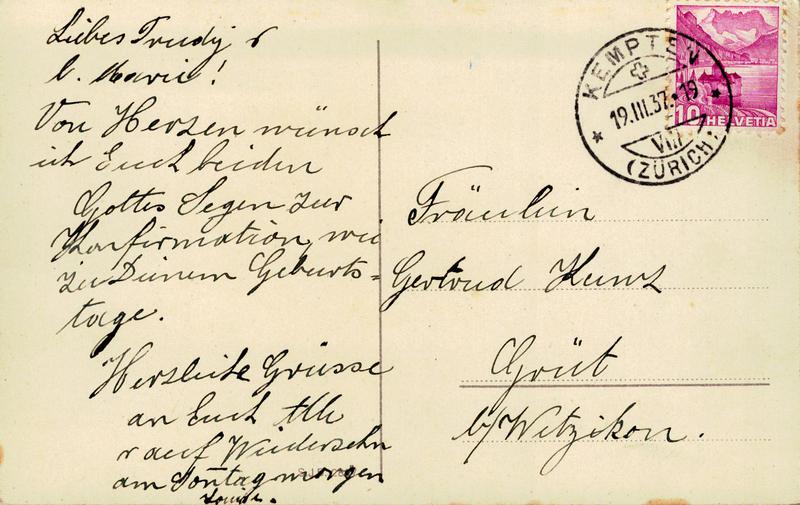 Liebes Trudy &
b. Marie!
Von Herzen wünsch
ich Euch beiden
Gottes Segen zur
Konfirmation, wie
zu Deinem Geburts-
tage.
Herzliche Grüsse
an Euch Alle
& auf Wiedersehn
am Sontag morgen
Louise.
KEMPTEN
19.III.37.-19
VIII
(ZÜRICH)
10 HELVETIA
Fräulein
Gertrud Kunz
Grüt
b/Wetzikon.